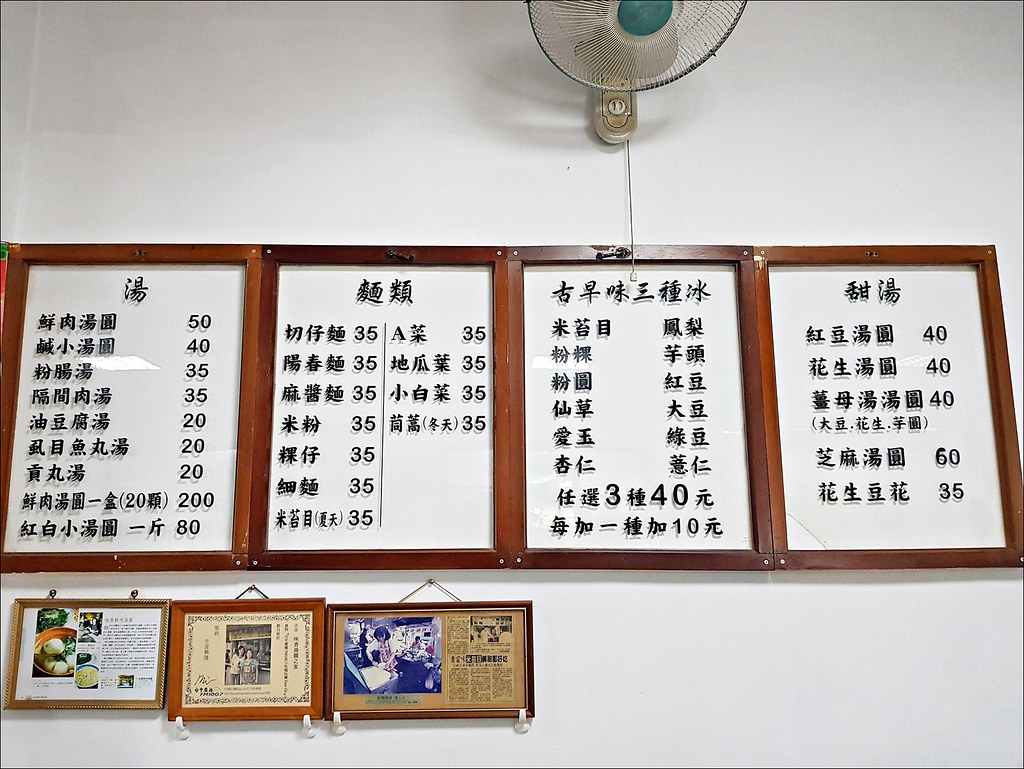 湯
鮮肉湯圓 50
鹹小湯圓 40
粉腸湯 35
隔間肉湯 35
油豆腐湯 20
虱目魚丸湯 20
貢丸湯 20
鮮肉湯圓一盒(20顆) 200
紅白小湯圓 一斤 80
麵類
切仔麵 35 A菜 35
陽春麵 35 地瓜葉 35
麻醬麵 35 小白菜 35
米粉 35 茼蒿(冬天) 35
粿仔 35
細麵 35
米苔目(夏天) 35
古早味三種冰
米苔目 鳳梨
粉粿 芋頭
粉圓 紅豆
仙草 大豆
愛玉 綠豆
杏仁 薏仁
任選3種40元
每加一種加10元
甜湯
紅豆湯圓 40
花生湯圓 40
薑母湯湯圓 40
(大豆.花生.芋圓)
芝麻湯圓 60
花生豆花 35